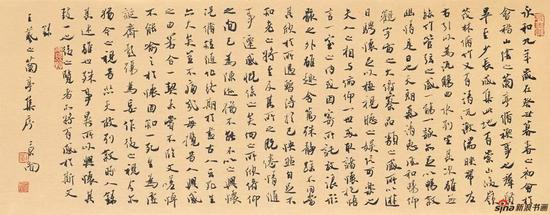 永和九年歲在癸丑暮春之初會於
會稽山陰之蘭亭脩禊事也羣賢
畢至少長咸集此地有崇山峻嶺
茂林脩竹又有清流激湍映帶左
右引以為流觴曲水列坐其次雖無
絲竹管弦之盛一觴一詠亦足以暢敘
幽情是日也天朗氣清惠風和暢仰
觀宇宙之大俯察品類之盛所以遊
目騁懷足以極視聽之娛信可樂也
夫人之相與俯仰一世或取諸懷抱悟
言一室之內或因寄所託放浪形
骸之外雖趣舍萬殊靜躁不同當
其欣於所遇暫得於己
所之既倦情隨
事遷感慨係之矣向之所欣俛仰
之間已為陳迹猶不能不以之興懷
況脩短隨化終期於盡古人云死生
亦大矣豈不痛哉每攬昔人興感
之由若合一契未嘗不臨文嗟悼
不能喻之於懷固知一死生為虛
誕齊彭殤為妄作後之視今亦
猶今之視昔悲夫故列敘時人錄
其所述雖世殊事異所以興懷其
致一也後之覽者亦將有感於斯文
王羲之蘭亭集序
sina 新浪书画